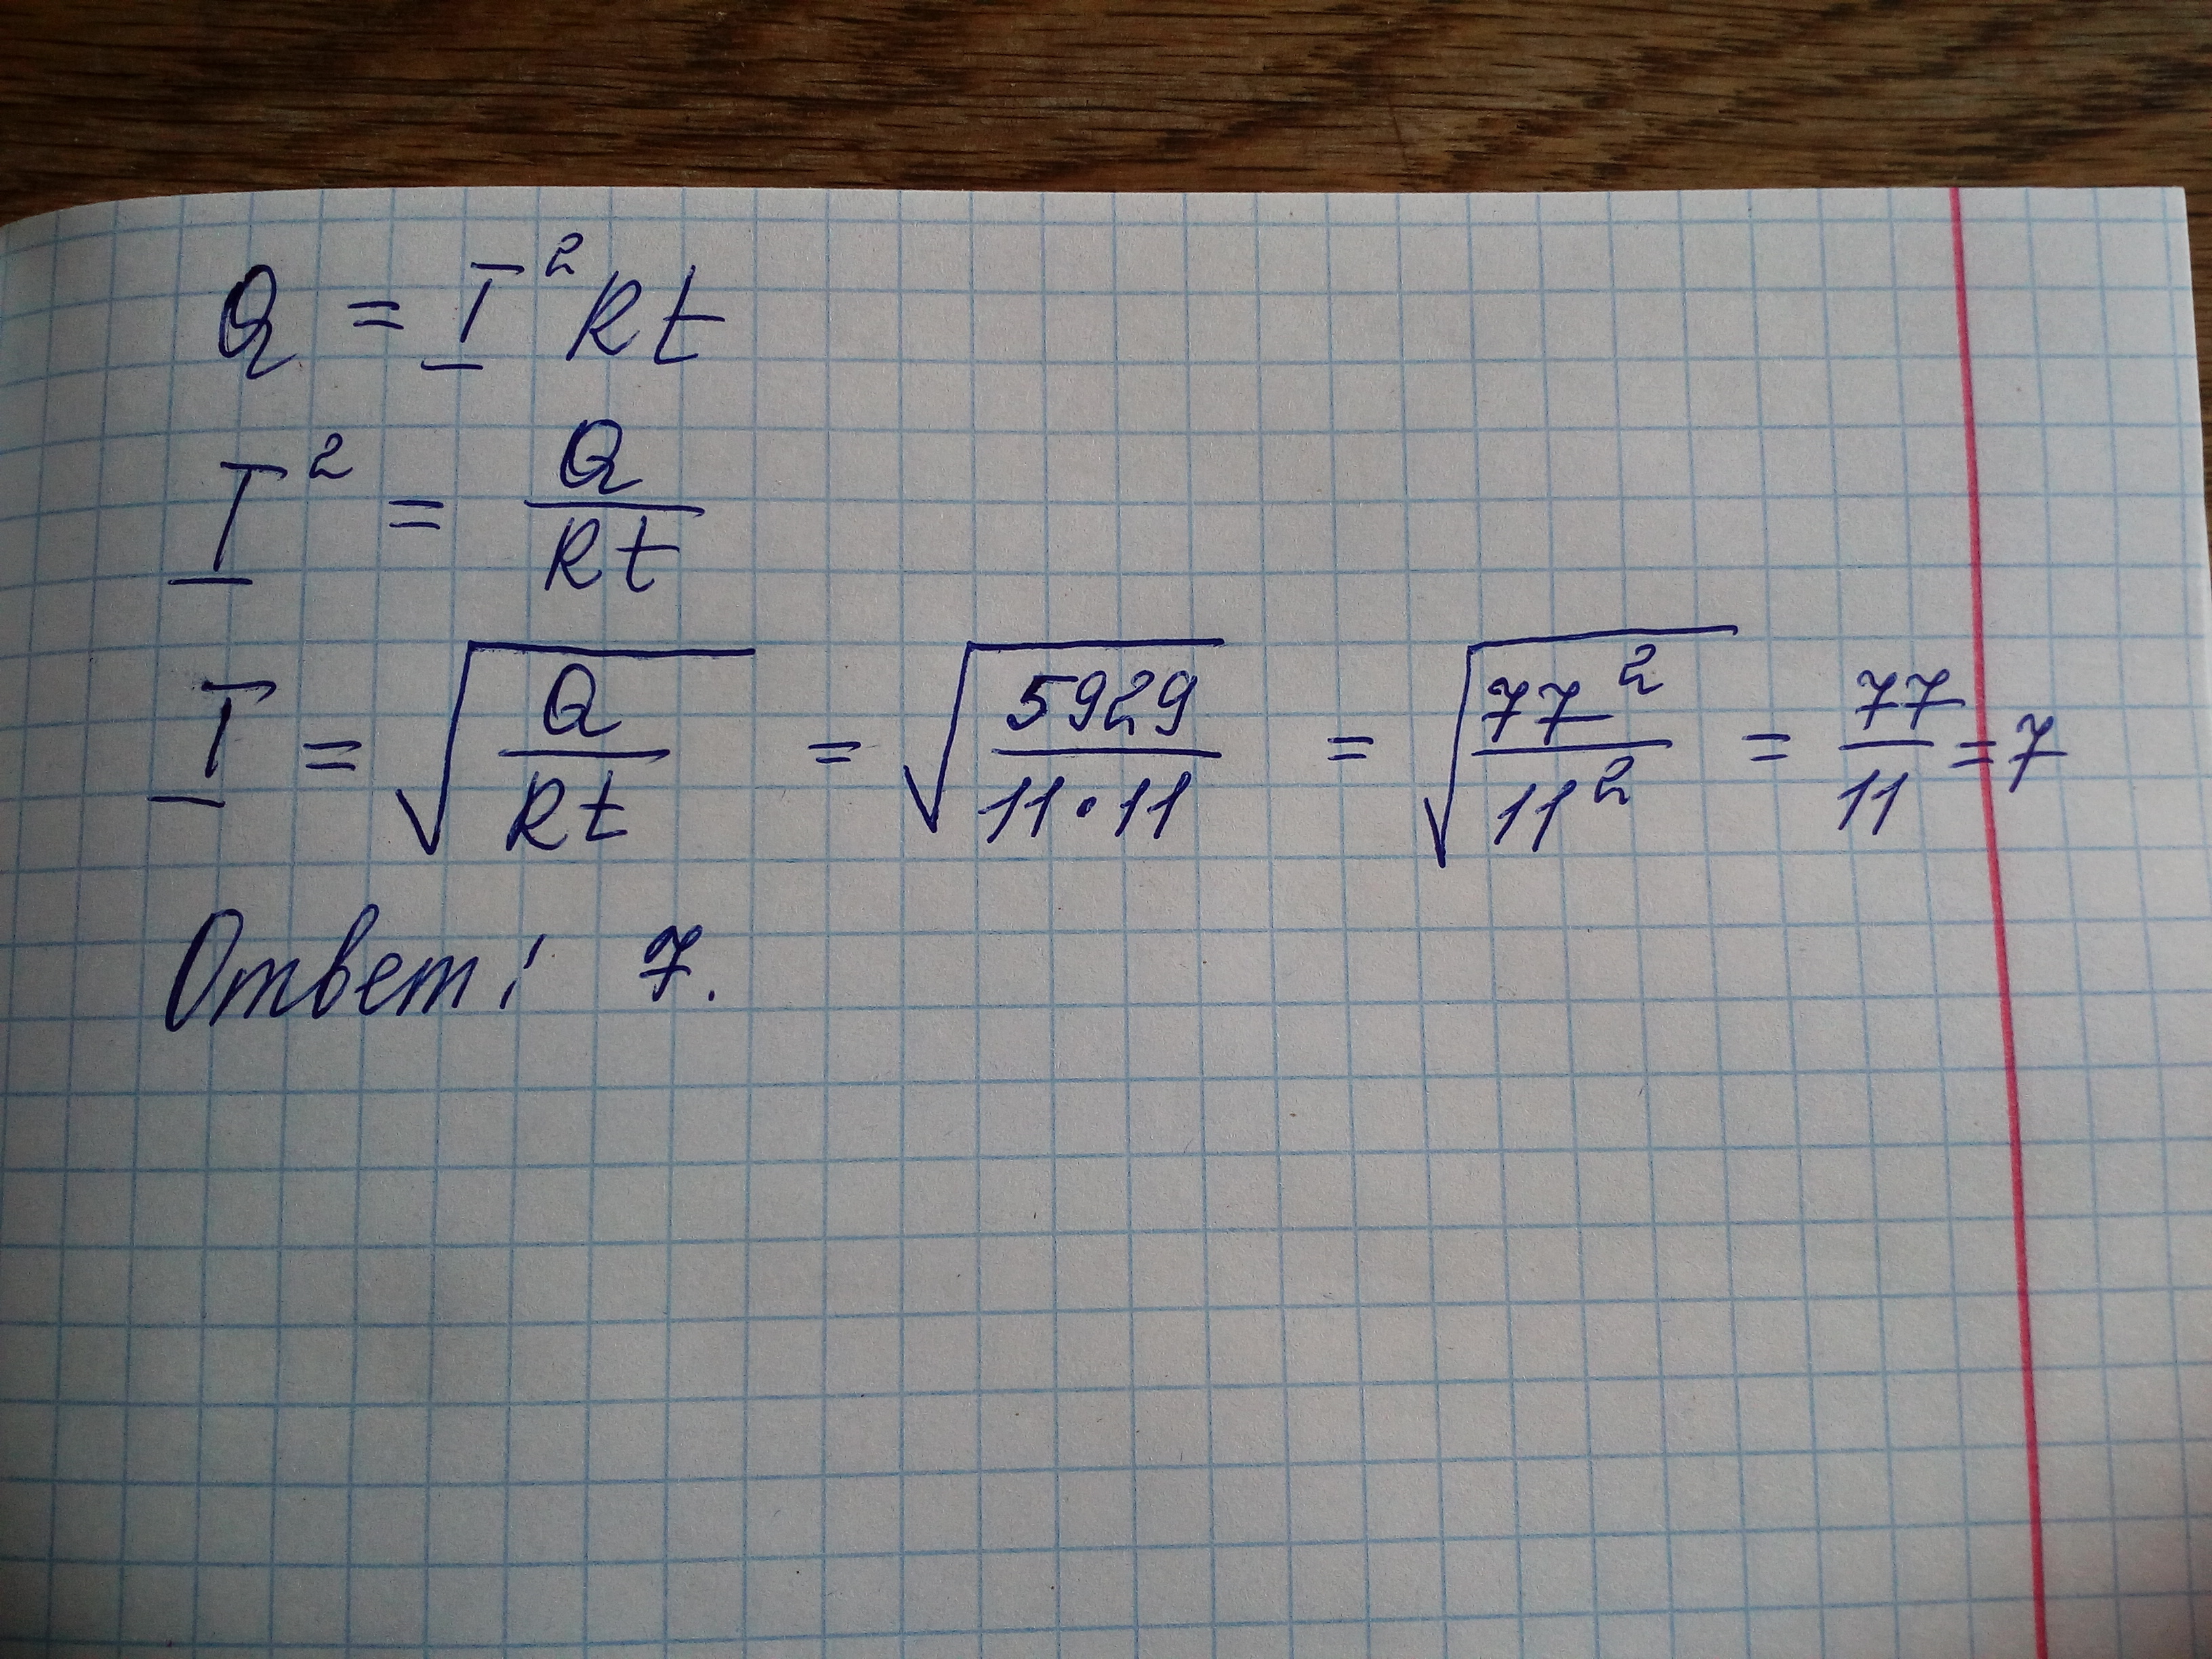 Q = I²Rt
I² = Q/Rt
I = √(Q/Rt) = √(5929/(11·11)) = √(77²/11²) = 77/11 = 7
Ответ: 7.